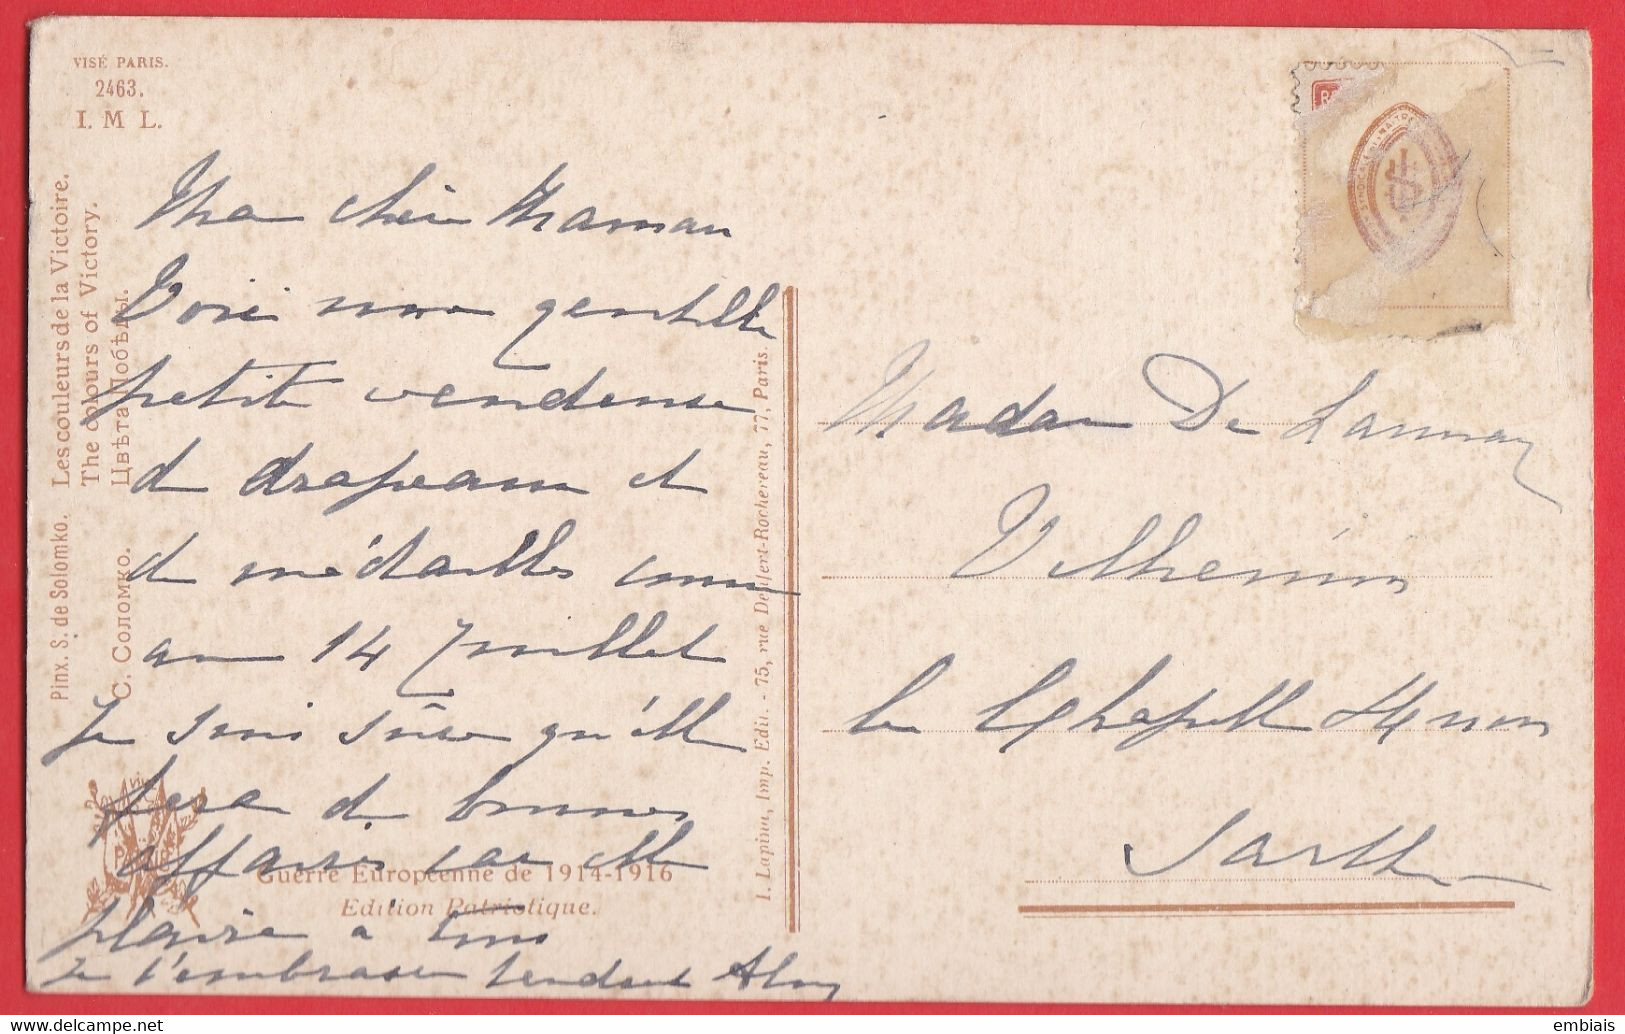 VISÉ PARIS.
2463.
I. M L.
Pinx. S. de Solomko. Les couleurs de la Victoire.
The colours of Victory.
С. Соломко. Цвѣта Побѣды.
Ma chère Maman
Voici une gentille
petite vendeuse
de drapeaux et
de médailles comme
au 14 Juillet
Je suis sûre qu'elle
fera de bonnes
affaires car elle
plaira a tous
Je t'embrasse tendrement
Guerre Européenne de 1914-1916
Edition Patriotique.
I. Lapina, Imp. Edit. - 75, rue Denfert-Rochereau, 77, Paris.
Madame De Lannay
la Chapelle
Sarthe
embiais